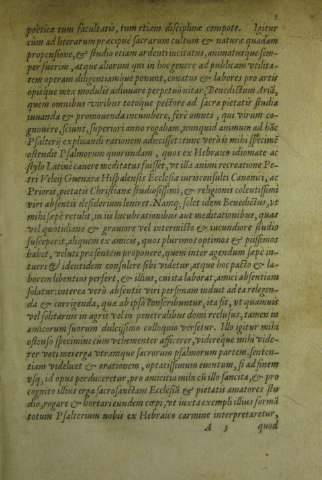 5
poëticæ tum facultatis, tum etiam disciplinæ compote. Igitur
cùm ad literarum præcipuè sacrarum cultum & naturæ quadam
propensione, & studio etiam ardenti incitatus, animatusque sem-
per fuerim, atque aliorum qui in hoc genere ad publicam vtilita-
tem operam diligentiamque ponunt, conatus & labores pro artis
opisque meæ modulo adiuuare perpetuò nitar, Benedictum Ariā,
quem omnibus viribus totoque pectore ad sacræ pietatis studia
iuuanda & promouenda incumbere, ferè omnes, qui virum co-
gnouere, sciunt, superiori anno rogabam, nunquid animum ad hāc
Psalterij explicandi rationem adiecisset: tunc verò is mihi
ostendit Psalmorum quorundam, quos ex Hebraico idiomate ac
stylo Latinè canere meditatus fuisset, vt illa animi recreatione Pe-
tri Veleij Gueuara Hispalensis Ecclesiæ iurisconsulti Canonici, ac
Prioris, pietatis Christianæ studiosissimi, & religionis colentissimi
viri absentis desiderium leniret. Nanq; solet idem Benedictus, vt
mihi sæpè retulit, in iis lucubrationibus aut meditationibus, quas
vel quotidiano & grauiore vel intermisso & iucundiore studio
susceperit, aliquem ex amicis, quos plurimos optimos & piissimos
habet, veluti præsentem proponere, quem inter agendum sæpe in-
tueri & identidem consulere sibi videtur, atque hoc pacto & la-
borem libentius perfert, & illius, cui sta laborat, amici absentiam
solatur: interea verò absentis viri personam induit ad ea relegen-
da & corrigenda, quæ ab ipso conscribuntur, ita fit, vt quamuis
vel solitarius in agris vel in penetralibus domi reclusus, tamen in
amicorum suorum dulcissimo colloquio versetur. Illo igitur mihi
ostenso specimine cùm vehementer afficerer, videreque mihi vide-
rer voti mei erga vtranque sacrorum psalmorum partem, senten-
tiam videlicet & orationem, optatissimum euentum, si ad finem
vsq; id opus perduceretur, pro amicitia mihi cū illo sancita, & pro
cognito illius erga sacrosanctam Ecclesiā & pietatis amatores stu
dio, rogare & hortari eundem cœpi, vt iuxta exempli illius formā
totum Psalterium nobis ex Hebraico carmine interpretaretur,
A 3 quod